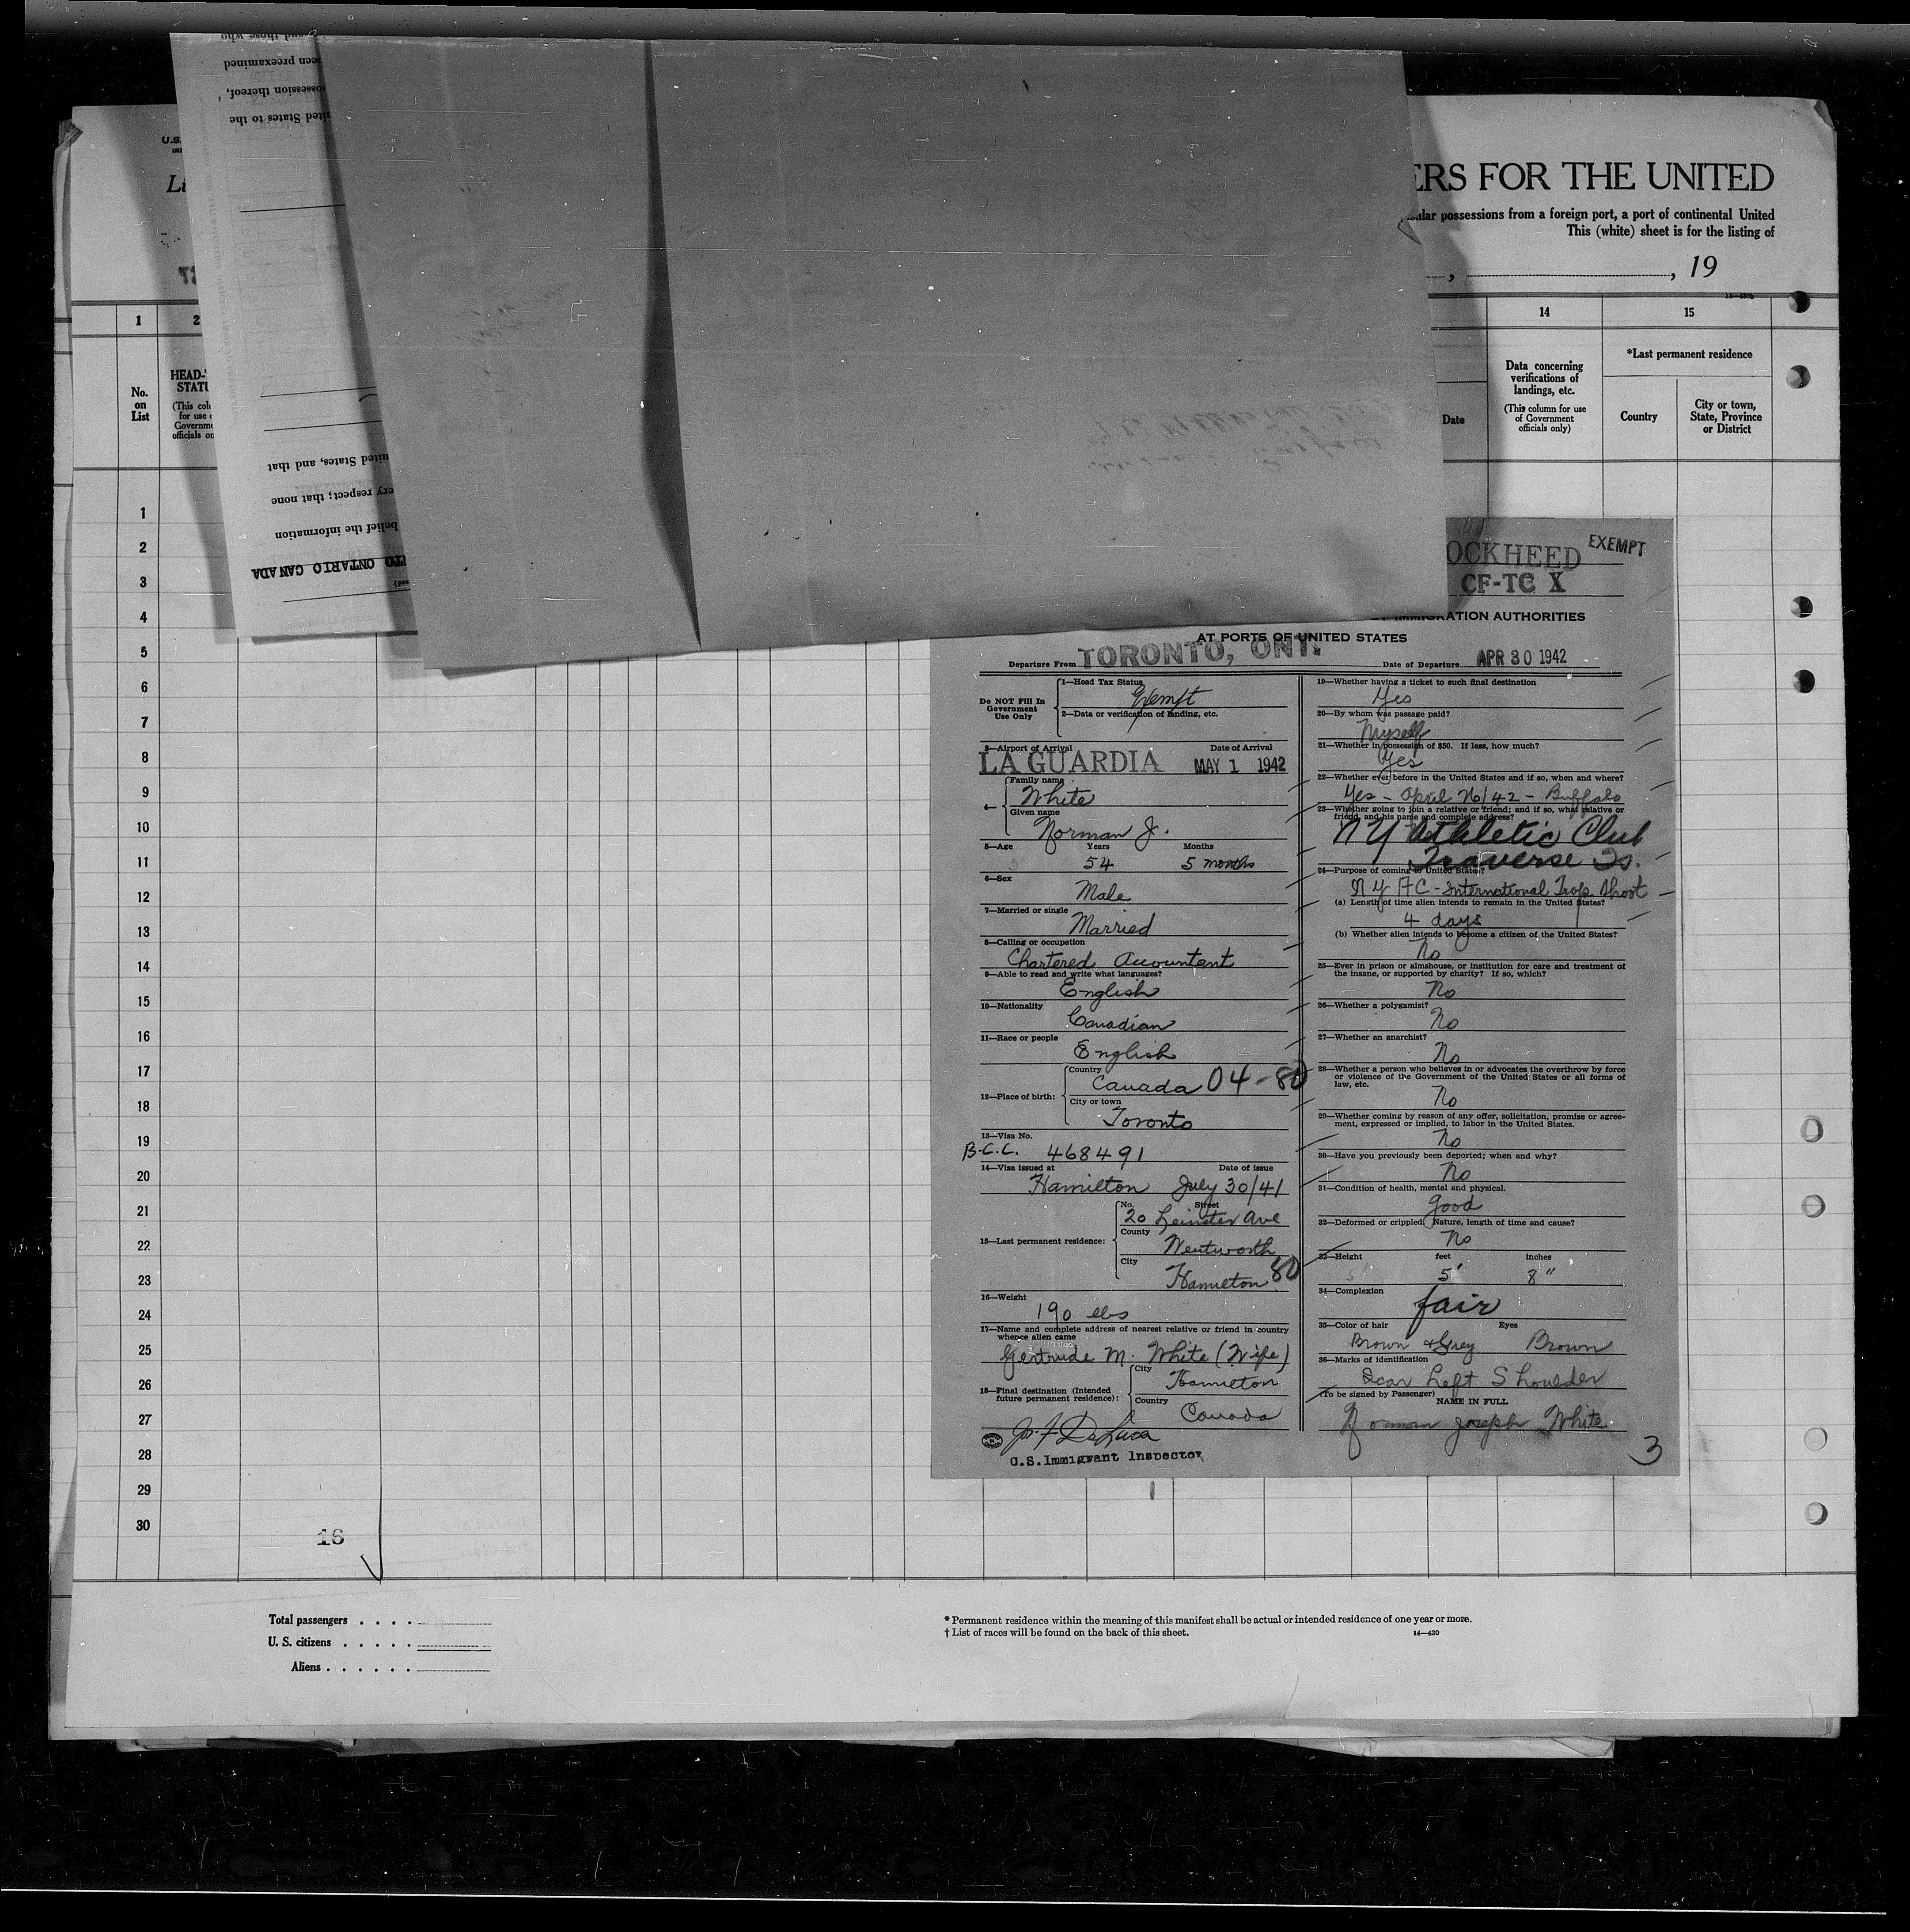 and those who
been preexamined
possession thereof,
United States to the
U.S.
ERS FOR THE UNITED
possessions from a foreign port, a port of continental United
This (white) sheet is for the listing of
, , 19
1
2
14
15
No.
on
List
HEAD-
STATU
(This col
for use
Governme
officials on
Date
Data concerning
verifications of
landings, etc.
(This column for use
of Government
officials only)
*Last permanent residence
Country
City or town,
State, Province
or District
United States, and that
every respect; that none
belief the information
ONTARIO CANADA
1
2
3
4
5
6
7
8
9
10
11
12
13
14
15
16
17
18
19
20
21
22
23
24
25
26
27
28
29
30
16
OCKHEED EXEMPT
CF-TC X
IMMIGRATION AUTHORITIES
AT PORTS OF UNITED STATES
Departure From TORONTO, ONT. Date of Departure APR 30 1942
Do NOT Fill In
Government
Use Only
1—Head Tax Status
Exempt
2—Data or verification of landing, etc.
3—Airport of Arrival Date of Arrival
LA GUARDIA MAY 1 1942
4—
Family name
White
Given name
Norman J.
5—Age Years Months
54 5 months
6—Sex
Male
7—Married or single
Married
8—Calling or occupation
Chartered Accountant
9—Able to read and write what languages?
English
10—Nationality
Canadian
11—Race or people
English
12—Place of birth:
Country
Canada 04-80
City or town
Toronto
13—Visa No.
B.C.C. 468491
14—Visa issued at Date of issue
Hamilton July 30/41
15—Last permanent residence:
No. Street
20 Leinster Ave
County
Wentworth
City
Hamilton 80
16—Weight
190 lbs
17—Name and complete address of nearest relative or friend in country
whence alien came
Gertrude M. White (Wife)
18—Final destination (Intended
future permanent residence):
City
Hamilton
Country
Canada
De Luca
U.S. Immigrant Inspector
19—Whether having a ticket to such final destination
Yes
20—By whom was passage paid?
Myself
21—Whether in possession of $50. If less, how much?
Yes
22—Whether ever before in the United States and if so, when and where?
Yes - April 16/42 - Buffalo
23—Whether going to join a relative or friend; and if so, what relative or
friend, and his name and complete address?
N Y Athletic Club
Traverse Is.
24—Purpose of coming to United States?
N Y A C - International Trap Shoot
(a) Length of time alien intends to remain in the United States?
4 days
(b) Whether alien intends to become a citizen of the United States?
No
25—Ever in prison or almshouse, or institution for care and treatment of
the insane, or supported by charity? If so, which?
No
26—Whether a polygamist?
No
27—Whether an anarchist?
No
28—Whether a person who believes in or advocates the overthrow by force
or violence of the Government of the United States or all forms of
law, etc.
No
29—Whether coming by reason of any offer, solicitation, promise or agree-
ment, expressed or implied, to labor in the United States.
No
30—Have you previously been deported; when and why?
No
31—Condition of health, mental and physical.
Good
32—Deformed or crippled. Nature, length of time and cause?
No
33—Height feet inches
5' 8"
34—Complexion
fair
35—Color of hair Eyes
Brown & Grey Brown
36—Marks of identification
Scar Left Shoulder
(To be signed by Passenger)
NAME IN FULL
Norman Joseph White
3
Total passengers . . . .
U. S. citizens . . . . .
Aliens . . . . . .
* Permanent residence within the meaning of this manifest shall be actual or intended residence of one year or more.
† List of races will be found on the back of this sheet. 14—430